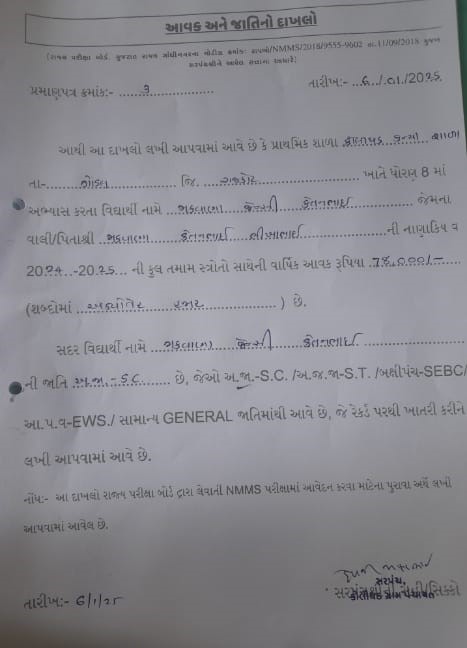 આવક અને જાતિનો દાખલો
(રાજ્ય પરીક્ષા બોર્ડ, ગુજરાત રાજ્ય ગાંધીનગરના નોટીસ ક્રમાંક: રાપબો/NMMS/2018/9555-9602 તા.11/09/2018 મુજબ
સરપંચશ્રીને આપેલ સત્તાના આધારે)
પ્રમાણપત્ર ક્રમાંક:- તારીખ:- 6/01/2025
આથી આ દાખલો લખી આપવામાં આવે છે કે પ્રાથમિક શાળા કન્યા શાળા
તા- જિ. રાજકોટ ખાતે ધોરણ 8 માં
અભ્યાસ કરતા વિદ્યાર્થી નામે મકવાણા કેતનભાઈ જેમના
વાલી/પિતાશ્રી મકવાણા કેતનભાઈ ની નાણાકિય વ
2024-2025 ની કુલ તમામ સ્ત્રોતો સાથેની વાર્ષિક આવક રૂપિયા 78,000/-
(શબ્દોમાં અઠ્યોતેર હજાર ) છે.
સદર વિદ્યાર્થી નામે મકવાણા કેતનભાઈ
ની જાતિ અ.જા.-SC છે, જેઓ અ.જા.-S.C. /અ.જ.જા-S.T. /બક્ષીપંચ-SEBC/
આ.પ.વ-EWS./ સામાન્ય GENERAL જાતિમાંથી આવે છે, જે રેકર્ડ પરથી ખાતરી કરીને
લખી આપવામાં આવે છે.
નોંધ:- આ દાખલો રાજ્ય પરીક્ષા બોર્ડ દ્વારા લેવાતી NMMS પરીક્ષામાં આવેદન કરવા માટેના પુરાવા અર્થે લખી
આપવામાં આવેલ છે.
સરપંચ,
તારીખ:- 6/1/25 ગ્રામ પંચાયત